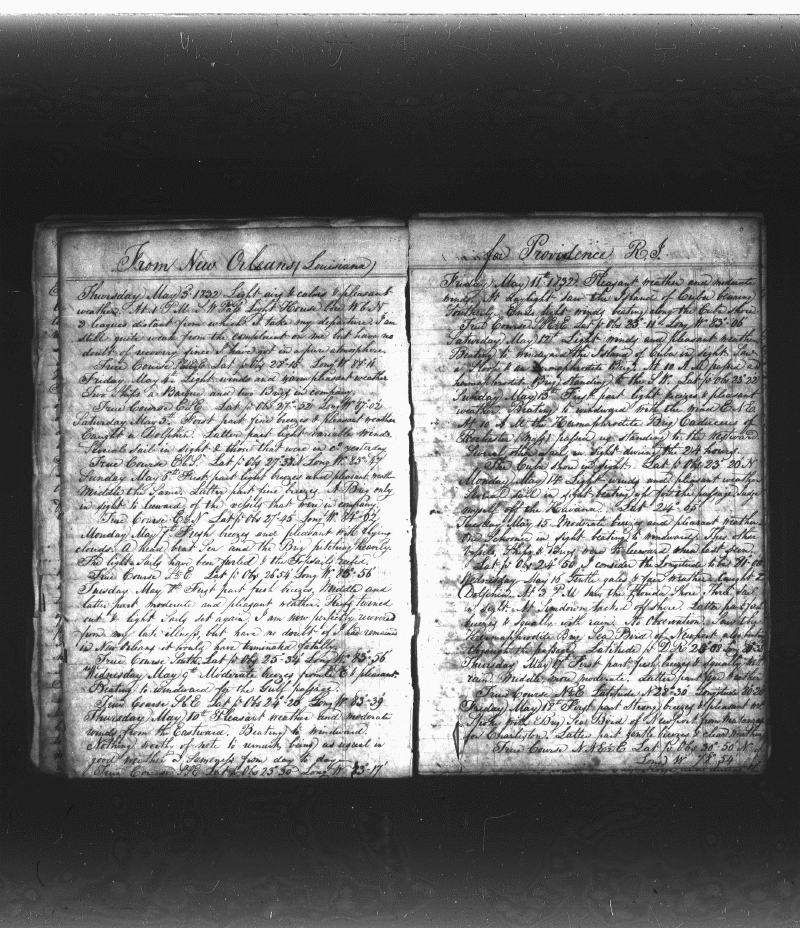 From New Orleans, Louisiana,
Thursday May 3d 1832 Light airs & calms & pleasant
weather. At 1 P.M. Light House bore W b N
3 leagues distant from which I take my departure. I am
still quite weak from the complaint on me but have no
doubt of recovery since I have got in a pure atmosphere.
True Course Lat p Obs 28-16 Long W. 88-4
Friday May 4th Light winds and warm pleasant weather
Two Ships a Barque and two Brigs in company.
True Course E Lat p Obs 27-52 Long W 87-02
Saturday May 5th First part fine breezes & pleasant weather
Caught a Dolphin. Latter part light variable winds
Several sail in sight & those that were in co yesterday
True Course Lat p Obs 27-32 Long W.
Sunday May 6th First part light breezes and pleasant weather
Middle the Same. Latter part fine breezes. A Brig only
in sight to leeward of the vessels that were in company.
True Course Lat p Obs 27-15 Long W. 84-02
Monday May 7th Fresh breezes and pleasant with flying
clouds. A head beat Sea and the Brig pitching heavily
The light Sails have been furled & the Topsails reefed
True Course Lat p Obs 26-54 Long W. 85-56
Tuesday May First part fresh breezes, Middle and
latter part moderate and pleasant weather. Reefs turned
out & light Sails set again. I am now perfectly recovered
from my late illness but have no doubt if I had remained
in New Orleans it would have terminated fatally.
True Course South. Lat p Obs 25-34 Long W. 85-56
Wednesday May 9th Moderate breezes from the E & pleasant.
Beating to Windward for the Gulf passage.
True Course Lat p Obs 24-26 Long W. 83-39
Thursday May 10th Pleasant weather and moderate
winds from the Eastward. Beating to windward.
Nothing worthy of note to remark being as usual in
good weather a sameness from day to day
True Course Lat p Obs 23-30 Long W 83-17
for Providence R.I.
Friday May 11th 1832 Pleasant weather and moderate
winds. At daylight saw the Island of Cuba bearing
Southerly. Ends light winds beating along the Cuba shore
True Course Lat p Obs 23-11 Long W. 83-06
Saturday May 12th Light winds and pleasant weather
Beating to windward the Island of Cuba in sight. Saw
a Sloop & an hermaphrodite Brig. At 10 A.M. passed a
hermaphrodite Brig Standing to the W. Lat p Obs 23-22
Sunday May 13th First part light breezes & pleasant
weather. Beating to windward with the wind E N E.
At 10 A.M. the Hermaphrodite Brig Cadaceus of
Rochester (Mass) passed us standing to the westward.
Several other sail in sight during the 24 hours.
The Cuba shore in sight. Lat p Obs 23-20 N
Monday May 14 Light winds and pleasant weather
Several sail in sight beating up for the passage. Judge
myself off the Havana. Lat 24-05
Tuesday May 15 Moderate breezes and pleasant weather
One Schooner in sight beating to windward.
Ships & Brigs were to leeward when last seen
Lat p Obs 24-50 I consider the Longitude to be
Wednesday May 16 Gentle gales & fair weather Caught 2
Dolphins. At 3 P.M. saw the Florida Shore
in sight. At Sundown tacked off shore. Latter part
breezes & squally with rain. No Observation. Saw the
Hermaphrodite Brig Sea Bird of Newport also
through the passage. Latitude p D.R. 28-08
Thursday May 17 First part fresh breezes & squally with
rain. Middle more moderate. Latter part fair weather
True Course Latitude N 28-30. Longitude
Friday May 18th First part Strong breezes & pleasant
Spoke with Brig Sea Bird of Newport from Matanzas
for Charleston. Latter part gentle breezes & clear weather
True Course N N E Lat p Obs 30-50 N
Long W 78-54